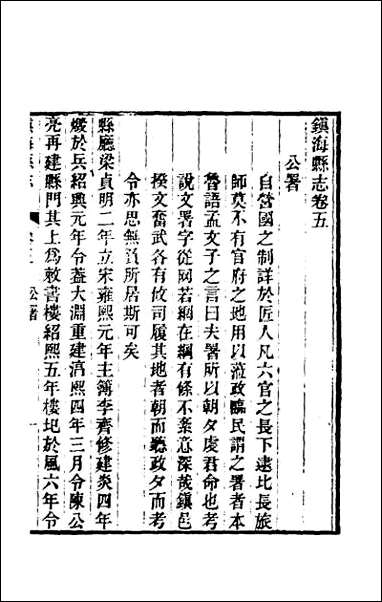 鎮海縣志卷五
公署
自營國之制詳於匠人凡六官之長下逮比長旅
師莫不有官府之地用以涖政臨民謂之署者本
魯語孟文子之言曰夫署所以朝夕虔君命也考
說文署字從网若網在綱有條不紊意深哉鎮邑
揆文奮武各有攸司履其地者朝而聽政夕而考
令亦思無負所居斯可矣
縣廳梁貞明二年立宋雍熙元年主簿李齊修建炎四年
燬於兵紹興元年令蓋大淵重建淳熙四年三月令陳公
亮再建縣門其上為敕書樓紹熙五年樓圮於風六年令
公署